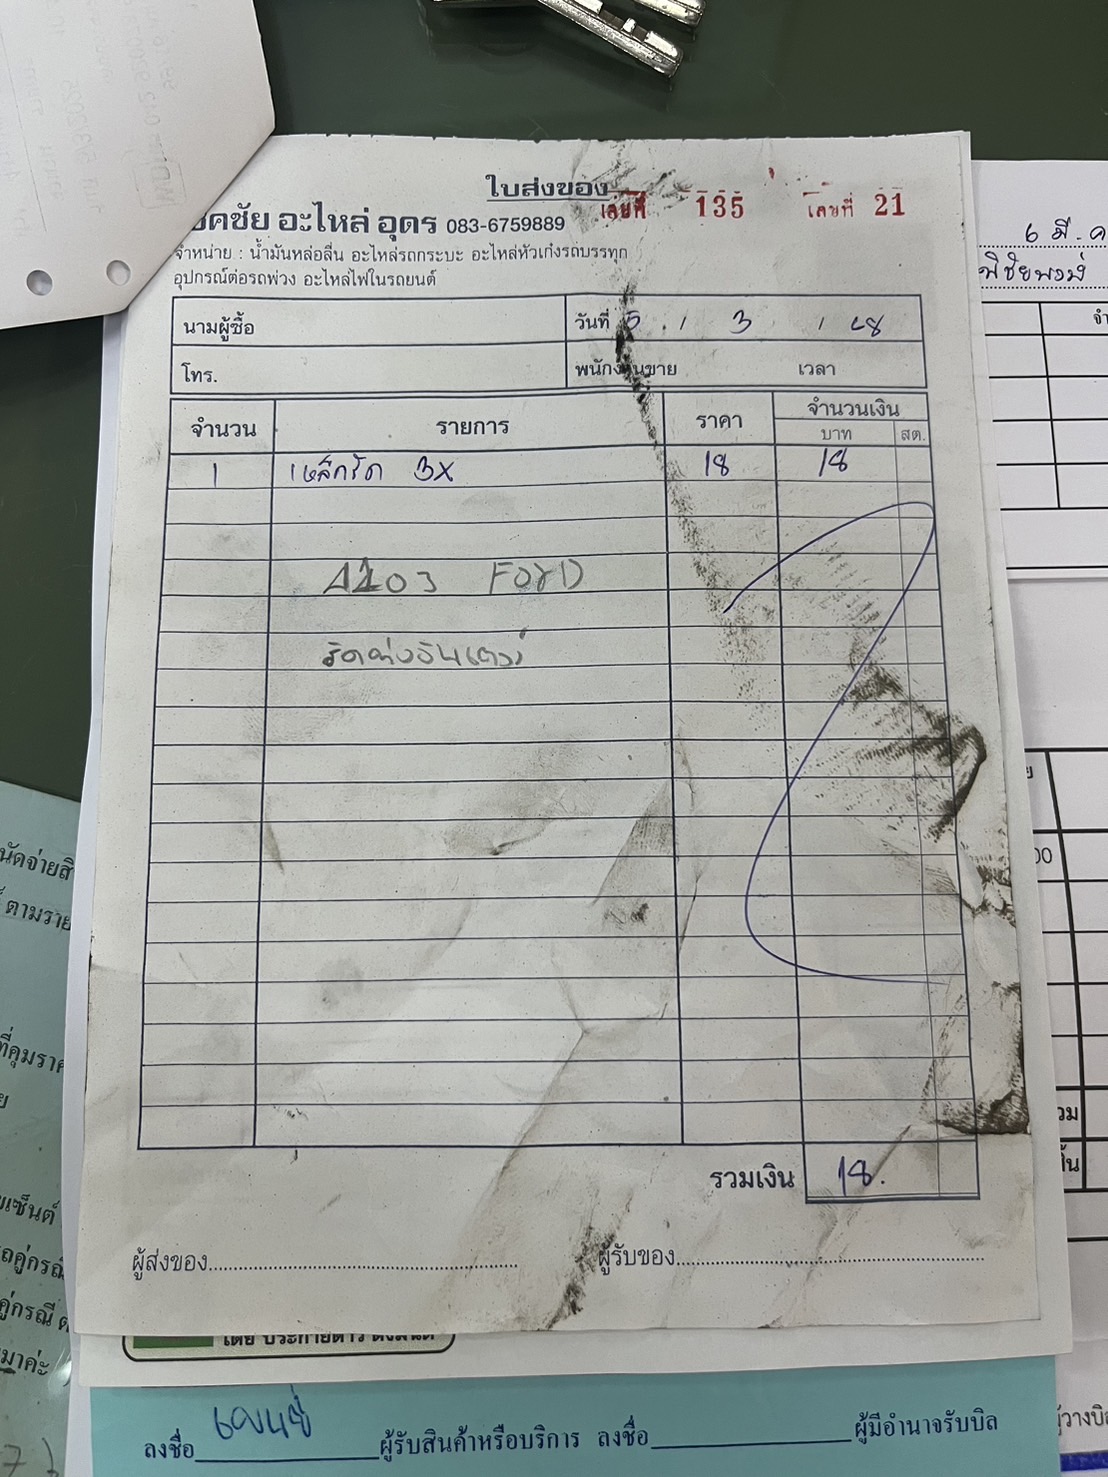 ใบส่งของ
เลขที่ 135 เลขที่ 21
คชัย อะไหล่ อุดร 083-6759889
จำหน่าย : น้ำมันหล่อลื่น อะไหล่รถกระบะ อะไหล่หัวเก๋งรถบรรทุก
อุปกรณ์ต่อรถพ่วง อะไหล่ไฟในรถยนต์
นามผู้ซื้อ วันที่ 5 / 3 / 68
โทร. พนักงานขาย เวลา
จำนวน รายการ ราคา จำนวนเงิน
บาท สต.
1 เหล็กรัด 3X 18 18
FORD
รวมเงิน 18.
ผู้ส่งของ ผู้รับของ
ลงชื่อ ผู้รับสินค้าหรือบริการ ลงชื่อ ผู้มีอำนาจรับบิล
6 มี.ค
นัดจ่ายสิ
ตามราย
ที่คุมราค
เซ็นต์
คู่กรณี
มาค่ะ